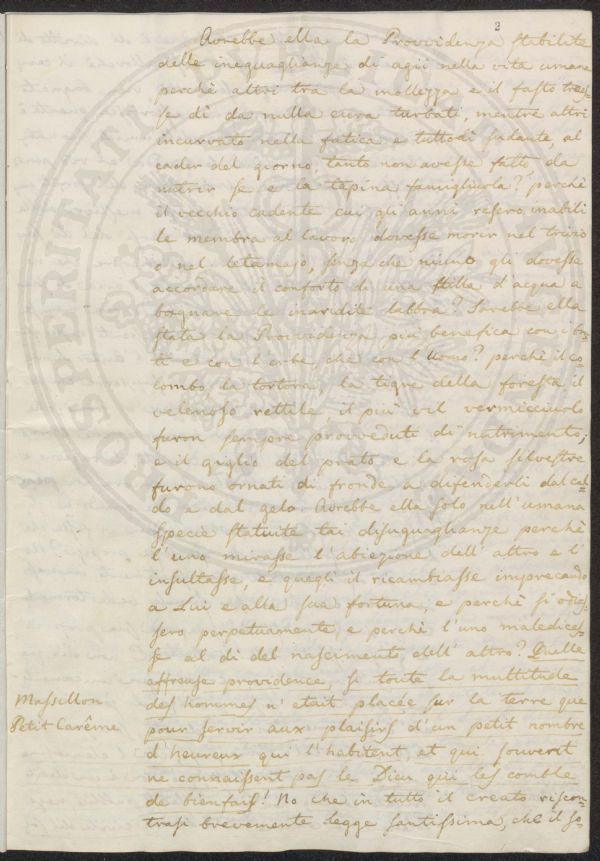 2
Avrebbe ella la Provvidenza stabilite
delle inequaglianze di agii nella vita umana
perchè altri tra la mollezza e il fasto traes-
se dì da nulla cura turbati, mentre altri
incurvato nella fatica e tuttodì sudante, al
cader del giorno, tanto non avesse fatto da
nutrir se e la tapina famigliuola? perchè
il vecchio cadente cui gli anni resero inabili
le membra al lavoro dovesse morir nel trivio
o nel letamajo, senza che niuno gli dovesse
accordare il conforto di una stilla d'acqua a
bagnare le inaridite labbra? Sarebbe ella
stata la Provvidenza più benefica con i bru-
ti e con l'erbe, che con l'Uomo? perchè il co-
lombo la tortora la tigre della foresta il
velenoso rettile il più vil vermicciuolo
furon sempre provveduti di nutrimento;
e il giglio del prato e la rosa silvestre
furono ornati di fronde a difenderli dal cal-
do e dal gelo. Avrebbe ella solo nell'umana
specie statuite tai disuguaglianze perchè
l'uno mirasse l'abiezione dell'altro e l'
insultasse, e quegli il ricambiasse imprecando
a Lui e alla sua fortuna, e perchè si odias-
sero perpetuamente, e perchè l'uno maledices-
se al dì del nascimento dell'altro? Quelle
affreuse providence, si toute la multitude
des hommes n'etait placée sur la terre que
pour servir aux plaisirs d'un petit nombre
d'heureux qui l'habitent, et qui souvent
ne connaissent pas le Dieu qui les comble
de bienfais! No che in tutto il creato riscon-
trasi brevemente legge santissima, che il so-
Massillon
Petit Carême